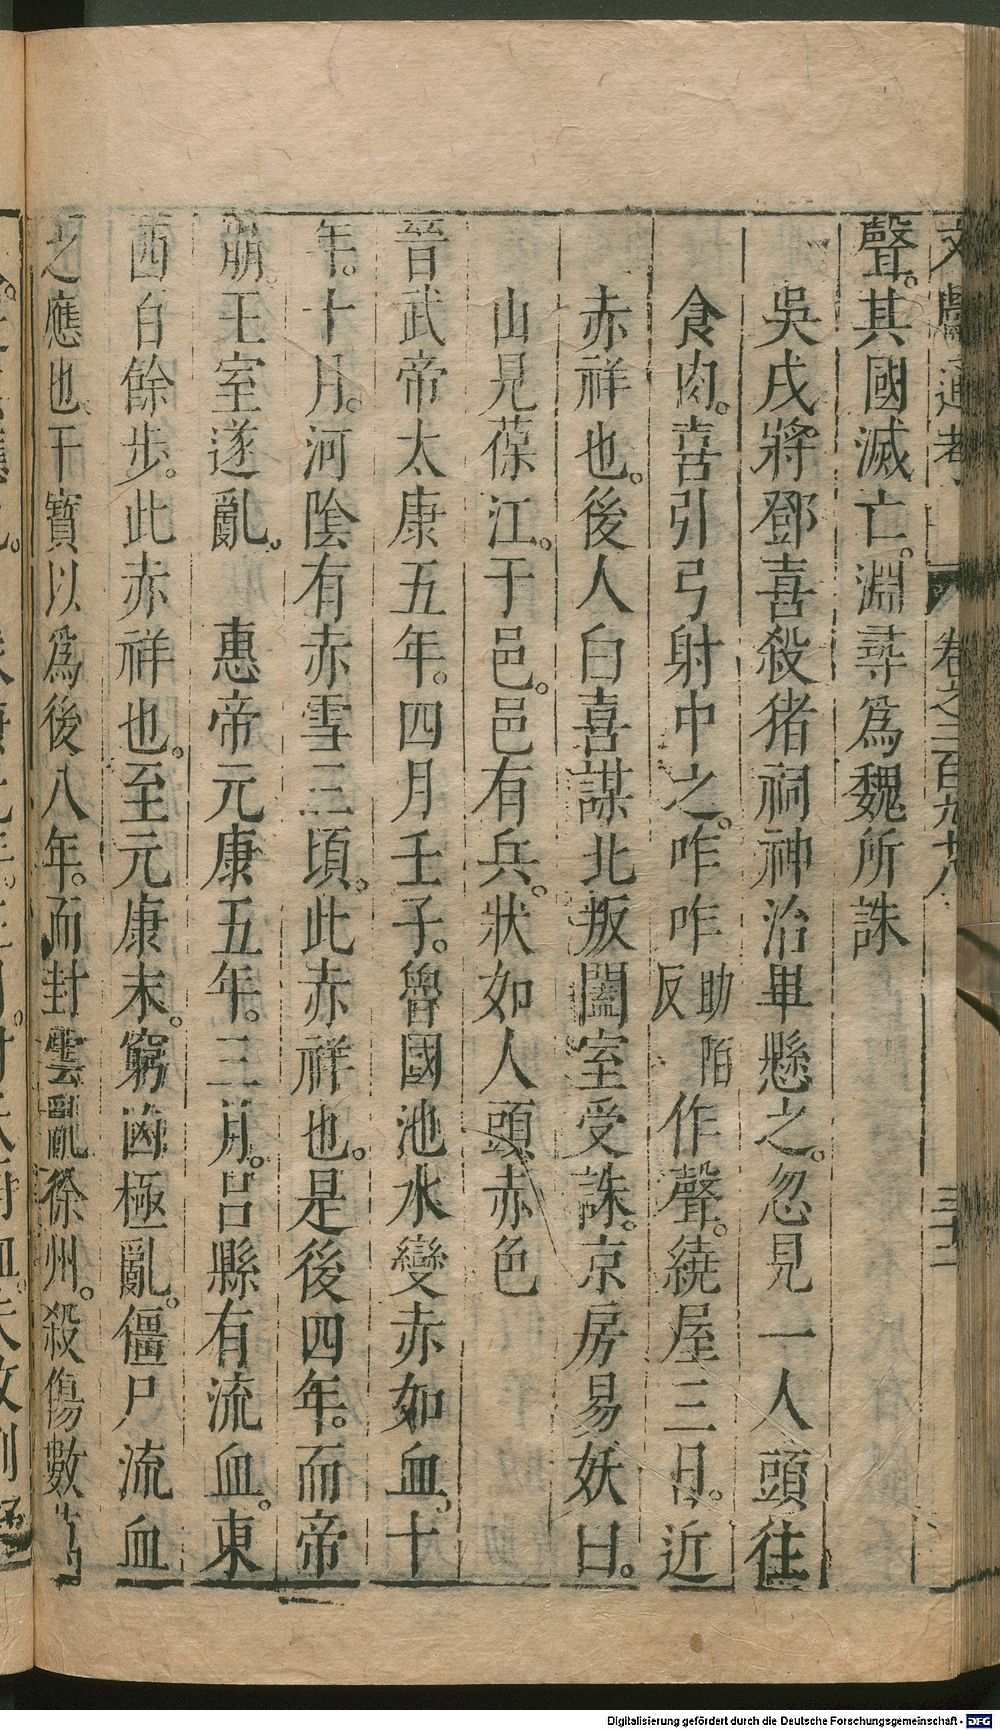 文獻通考　卷之三百九十八　三十二
聲。其國滅亡。淵尋爲魏所誅
吳戌將鄧喜殺猪祠神治畢懸之。忽見一人頭往
食肉。喜引弓射中之。咋咋助陌反作聲。繞屋三日。近
赤祥也。後人白喜謀北叛闔室受誅。京房易妖曰。
山見葆江。于邑。邑有兵。狀如人頭赤色
晉武帝太康五年。四月壬子。魯國池水變赤如血。十
年。十月。河陰有赤雪三頃。此赤祥也。是後四年。而帝
崩。王室遂亂。　惠帝元康五年。三月。吕縣有流血。東
西百餘步。此赤祥也。至元康末。窮凶極亂。僵尸流血
之應也。干寶以爲後八年。而封雲亂徐州。殺傷數
Digitalisierung gefördert durch die Deutsche Forschungsgemeinschaft - DFG